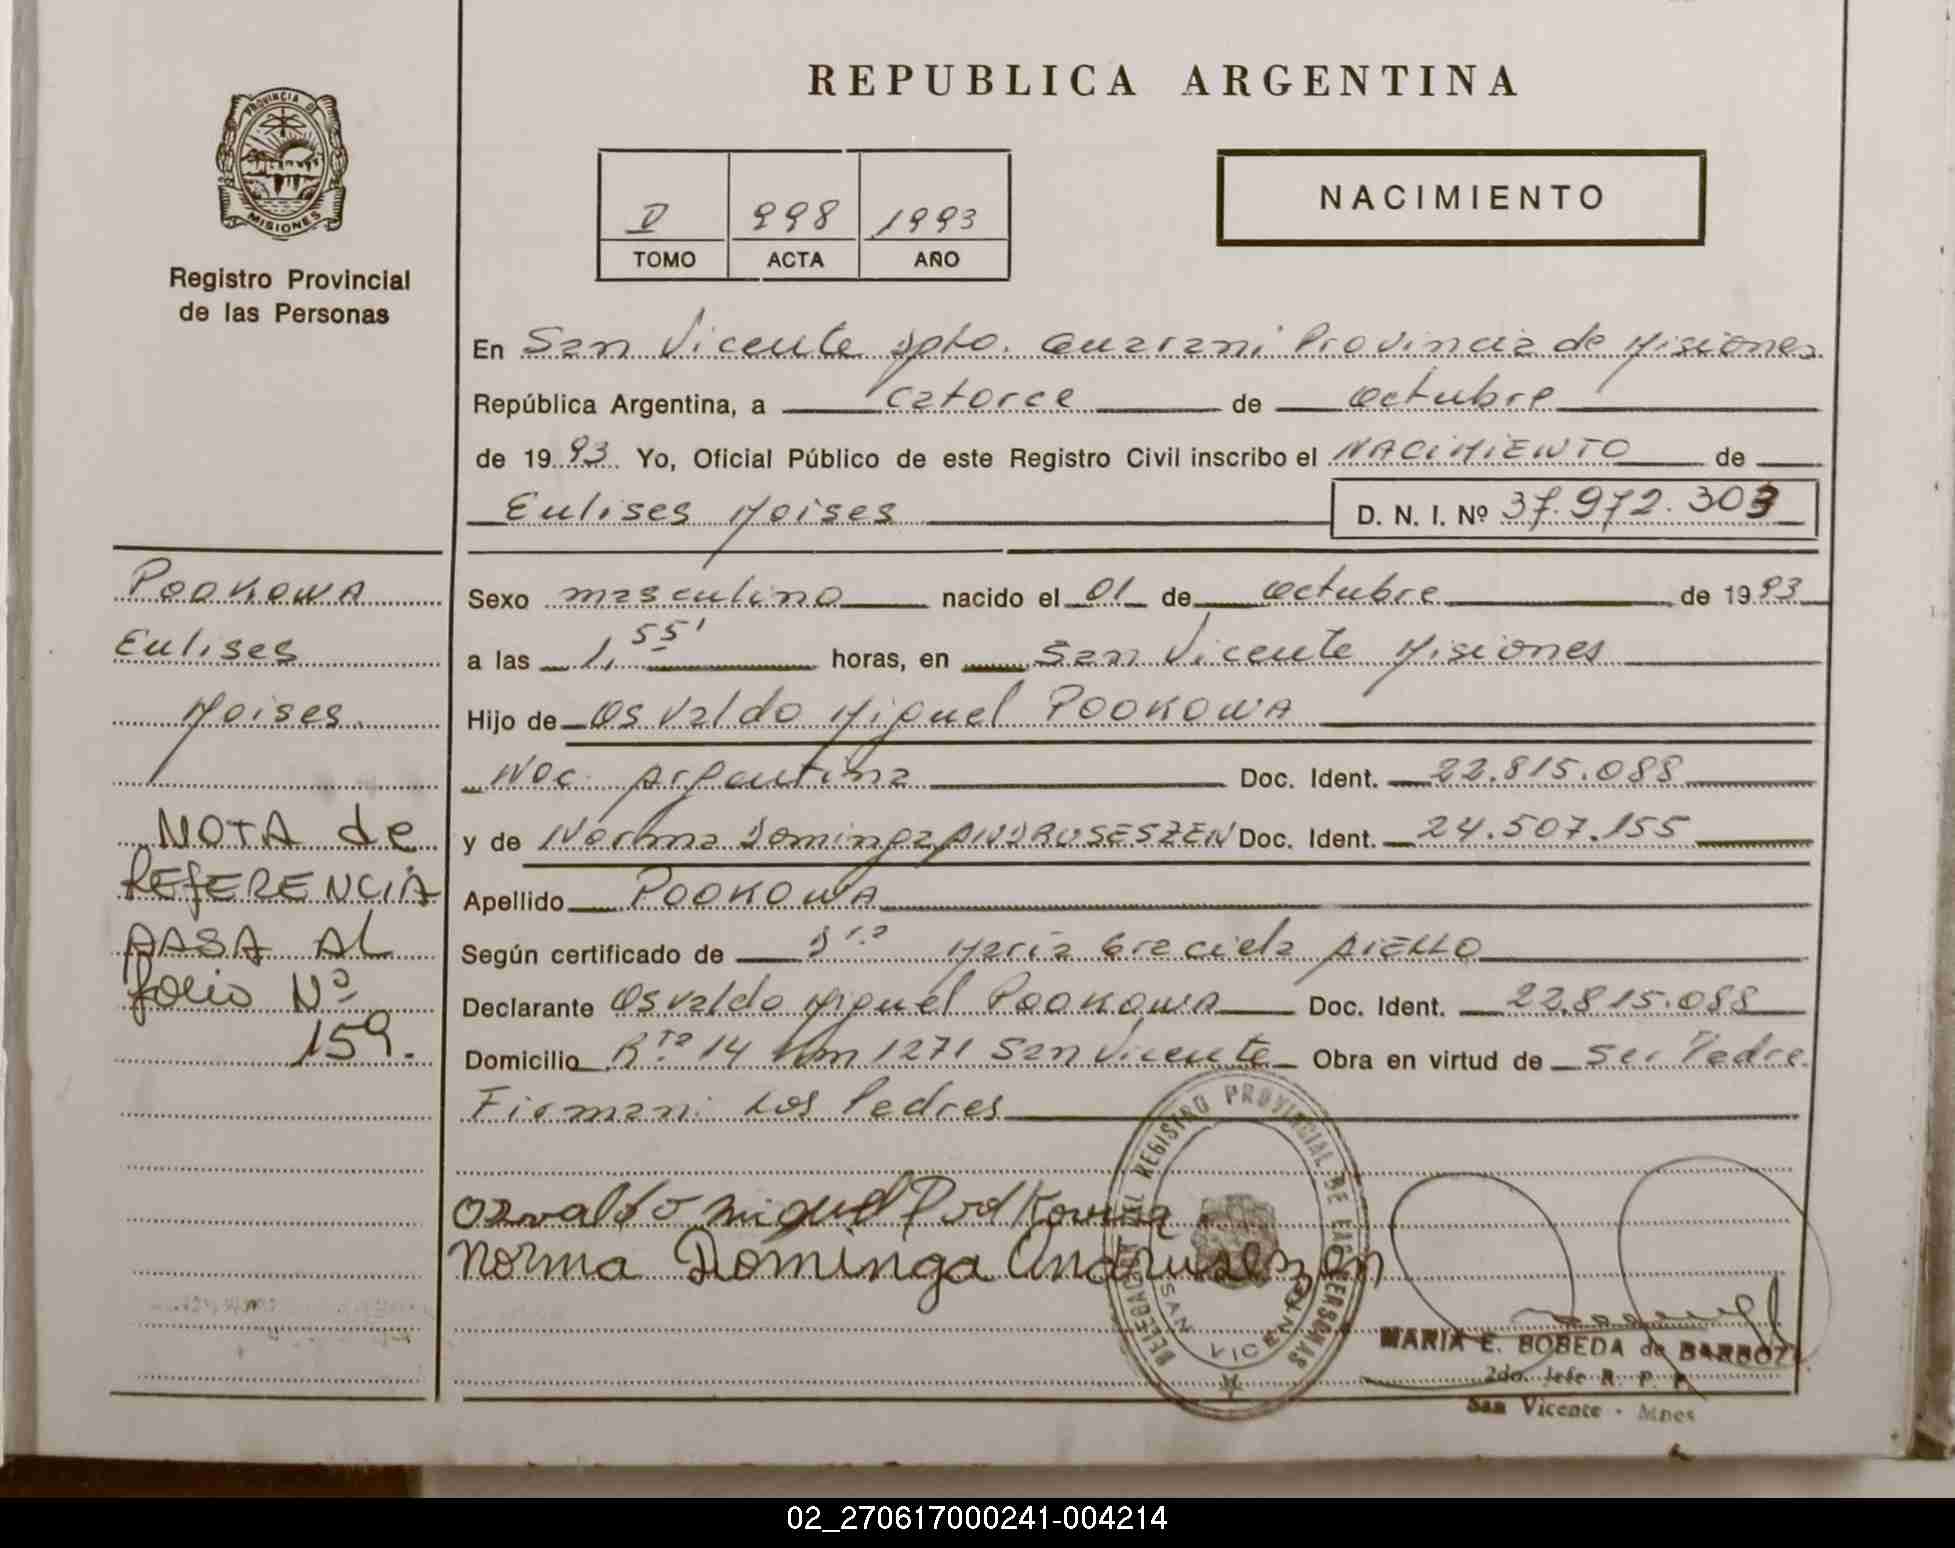 REPUBLICA ARGENTINA
PROVINCIA DE
MISIONES
Registro Provincial
de las Personas
998 1993
TOMO ACTA AÑO
NACIMIENTO
En San Vicente Dpto. Guarani Provincia de Misiones
República Argentina, a catorce de octubre
de 1993 Yo, Oficial Público de este Registro Civil inscribo el NACIMIENTO de
Eulises Moises D. N. I. Nº 37.972.303
Sexo masculino nacido el 01 de octubre de 1993
a las 1,55' horas, en San Vicente Misiones
Hijo de Osvaldo Miguel POOKOWA
Nac. Argentina Doc. Ident. 22.815.088
y de Norma Dominga ANDRUSESZEN Doc. Ident. 24.507.155
Apellido POOKOWA
Según certificado de Dra Maria Graciela AIELLO
Declarante Osvaldo Miguel POOKOWA Doc. Ident. 22.815.088
Domicilio Rta 14 Km 1271 San Vicente Obra en virtud de ser Padre.
Firman: Los Padres
POOKOWA
Eulises
Moises.
NOTA de
REFERENCIA
PASA AL
folio Nº
159.
Osvaldo Miguel
Norma Dominga
DELEGACION DEL REGISTRO PROVINCIAL DE LAS PERSONAS
SAN VICENTE
MARIA E. BOBEDA de BARBOZA
2do. Jefe R. P. P.
San Vicente - Mnes
02_270617000241-004214